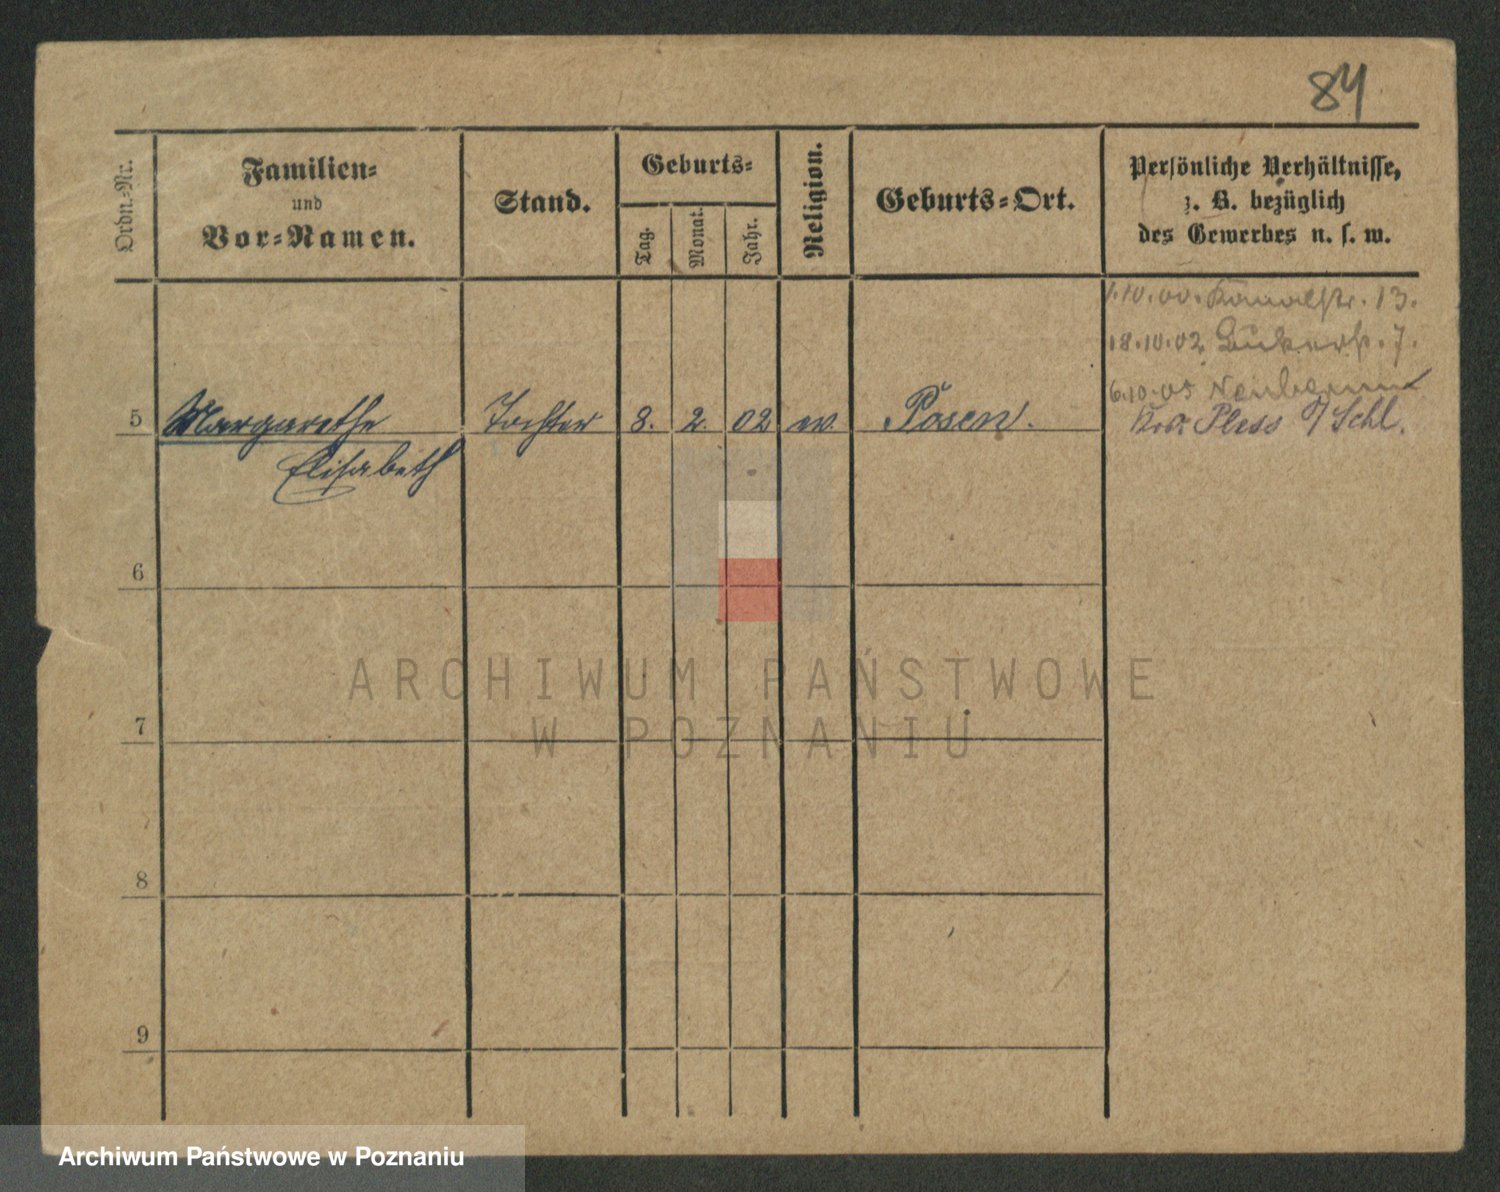 84
Ordn.-Nr.
Familien-
und
Vor-Namen.
Stand.
Geburts-
Tag.
Monat.
Jahr.
Religion.
Geburts-Ort.
Persönliche Verhältnisse,
z. B. bezüglich
des Gewerbes u. s. w.
1.10.00. Kanalstr. 13.
18.10.02 7.
6.10.05
5 Margarethe Tochter 8. 2. 02 ev. Posen. Pless O/Schl.
Elisabeth
6
7
8
9
ARCHIWUM PAŃSTWOWE
W POZNANIU
Archiwum Państwowe w Poznaniu